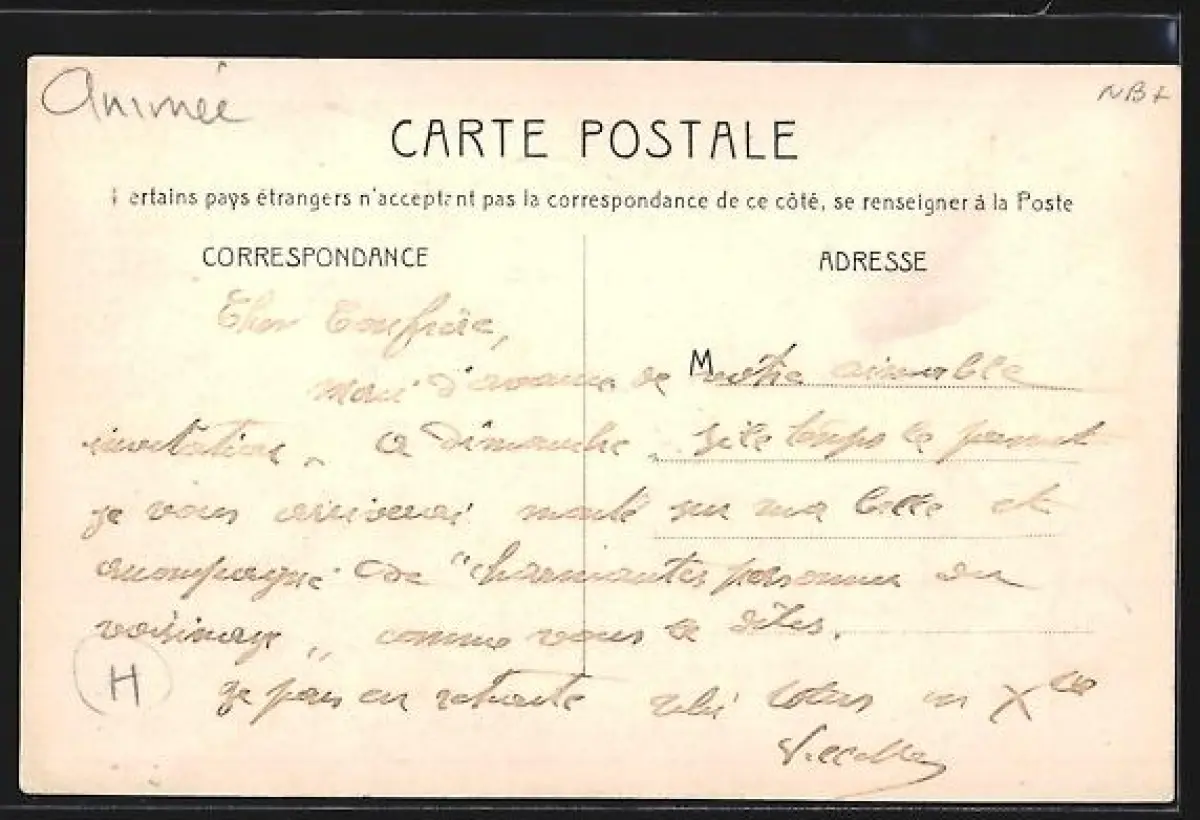 Animée
NB+
CARTE POSTALE
ertains pays étrangers n'acceptent pas la correspondance de ce côté, se renseigner à la Poste
CORRESPONDANCE
ADRESSE
Cher Confrère,
M
Merci d'avance de votre aimable
invitation, a Dimanche, si le temps le permet
je vous arriverai monté sur ma bette et
accompagné de "charmantes personnes du
voisinage", comme vous le dites.
H
Je pars en retraite